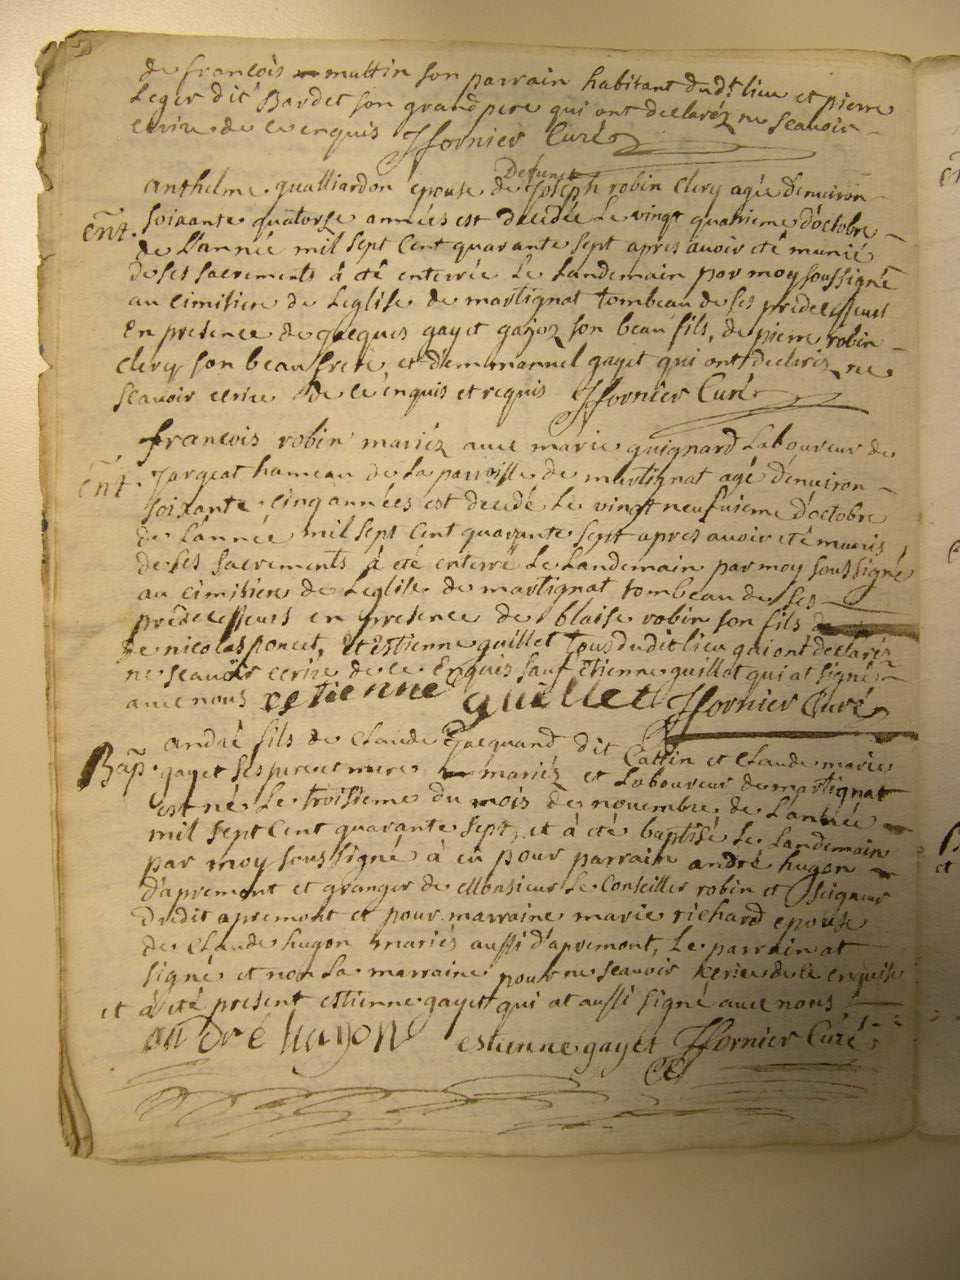 de francois muttin son parrain habitant dudt lieu et pierre
Leger dit Bardet son grand pere qui ont declaréz ne scavoir
ecrire de ce enquis Jfornier Curé
Anthelme gualliardon epouse de Defunt Joseph robin clery agée denuiron
ent. soixante quatorse années est decédée Le vingt quatrieme d'octobre
de L'année mil sept Cent quarante sept apres auoir eté munié
de ses sacrements à eté enterrée Le Landemain par moy soussigné
au cimitiere de Leglise de martignat tombeau de ses predecesseurs
En presence de gayet son beau fils, de pierre robin
clery son beau frere, et d'emmanuel gayet qui ont declaréz ne
scavoir ecrire de ce enquis et requis Jfornier Curé
francois robin mariéz auec marie guignard Laboureur de
ent. Jargeat hameau de La parroisse de martignat agé denuiron
soixante cinq années est decedé Le vingt neufuieme d'octobre
de L'année mil sept Cent quarante sept apres auoir eté munis
de ses sacrements à été enterré Le Landemain par moy soussigné
au cimitiere de Leglise de martignat tombeau de ses
predecesseurs en presence de blaise robin son fils
de nicolas poncet, et Estienne guillet tous dudit lieu qui ont declaréz
ne scauoir ecrire de ce Enquis sauf Etienne guillot qui at signé
auec nous estienne guillet Jfornier Curé
Bap. andré fils de Claude Jacquand dit Cattin et Claude marie
gayet ses pere et mere mariéz et Laboureur de martignat
est né Le troisieme du mois de novembre de L'année
mil sept Cent quarante sept, et à eté baptisé Le Landemain
par moy soussigné à eu pour parrain andré hugon
d'apremont et granger de Monsieur Le Conseiller robin et Seigneur
dudit apremont et pour marraine marie richard epouse
de Claude hugon mariés aussi d'apremont, Le parrain at
signé et non La marraine pour ne scauoir ecrire de ce enquise
et à eté present estienne gayet qui at aussi signé auec nous
andré hugon estienne gayet Jfornier Curé